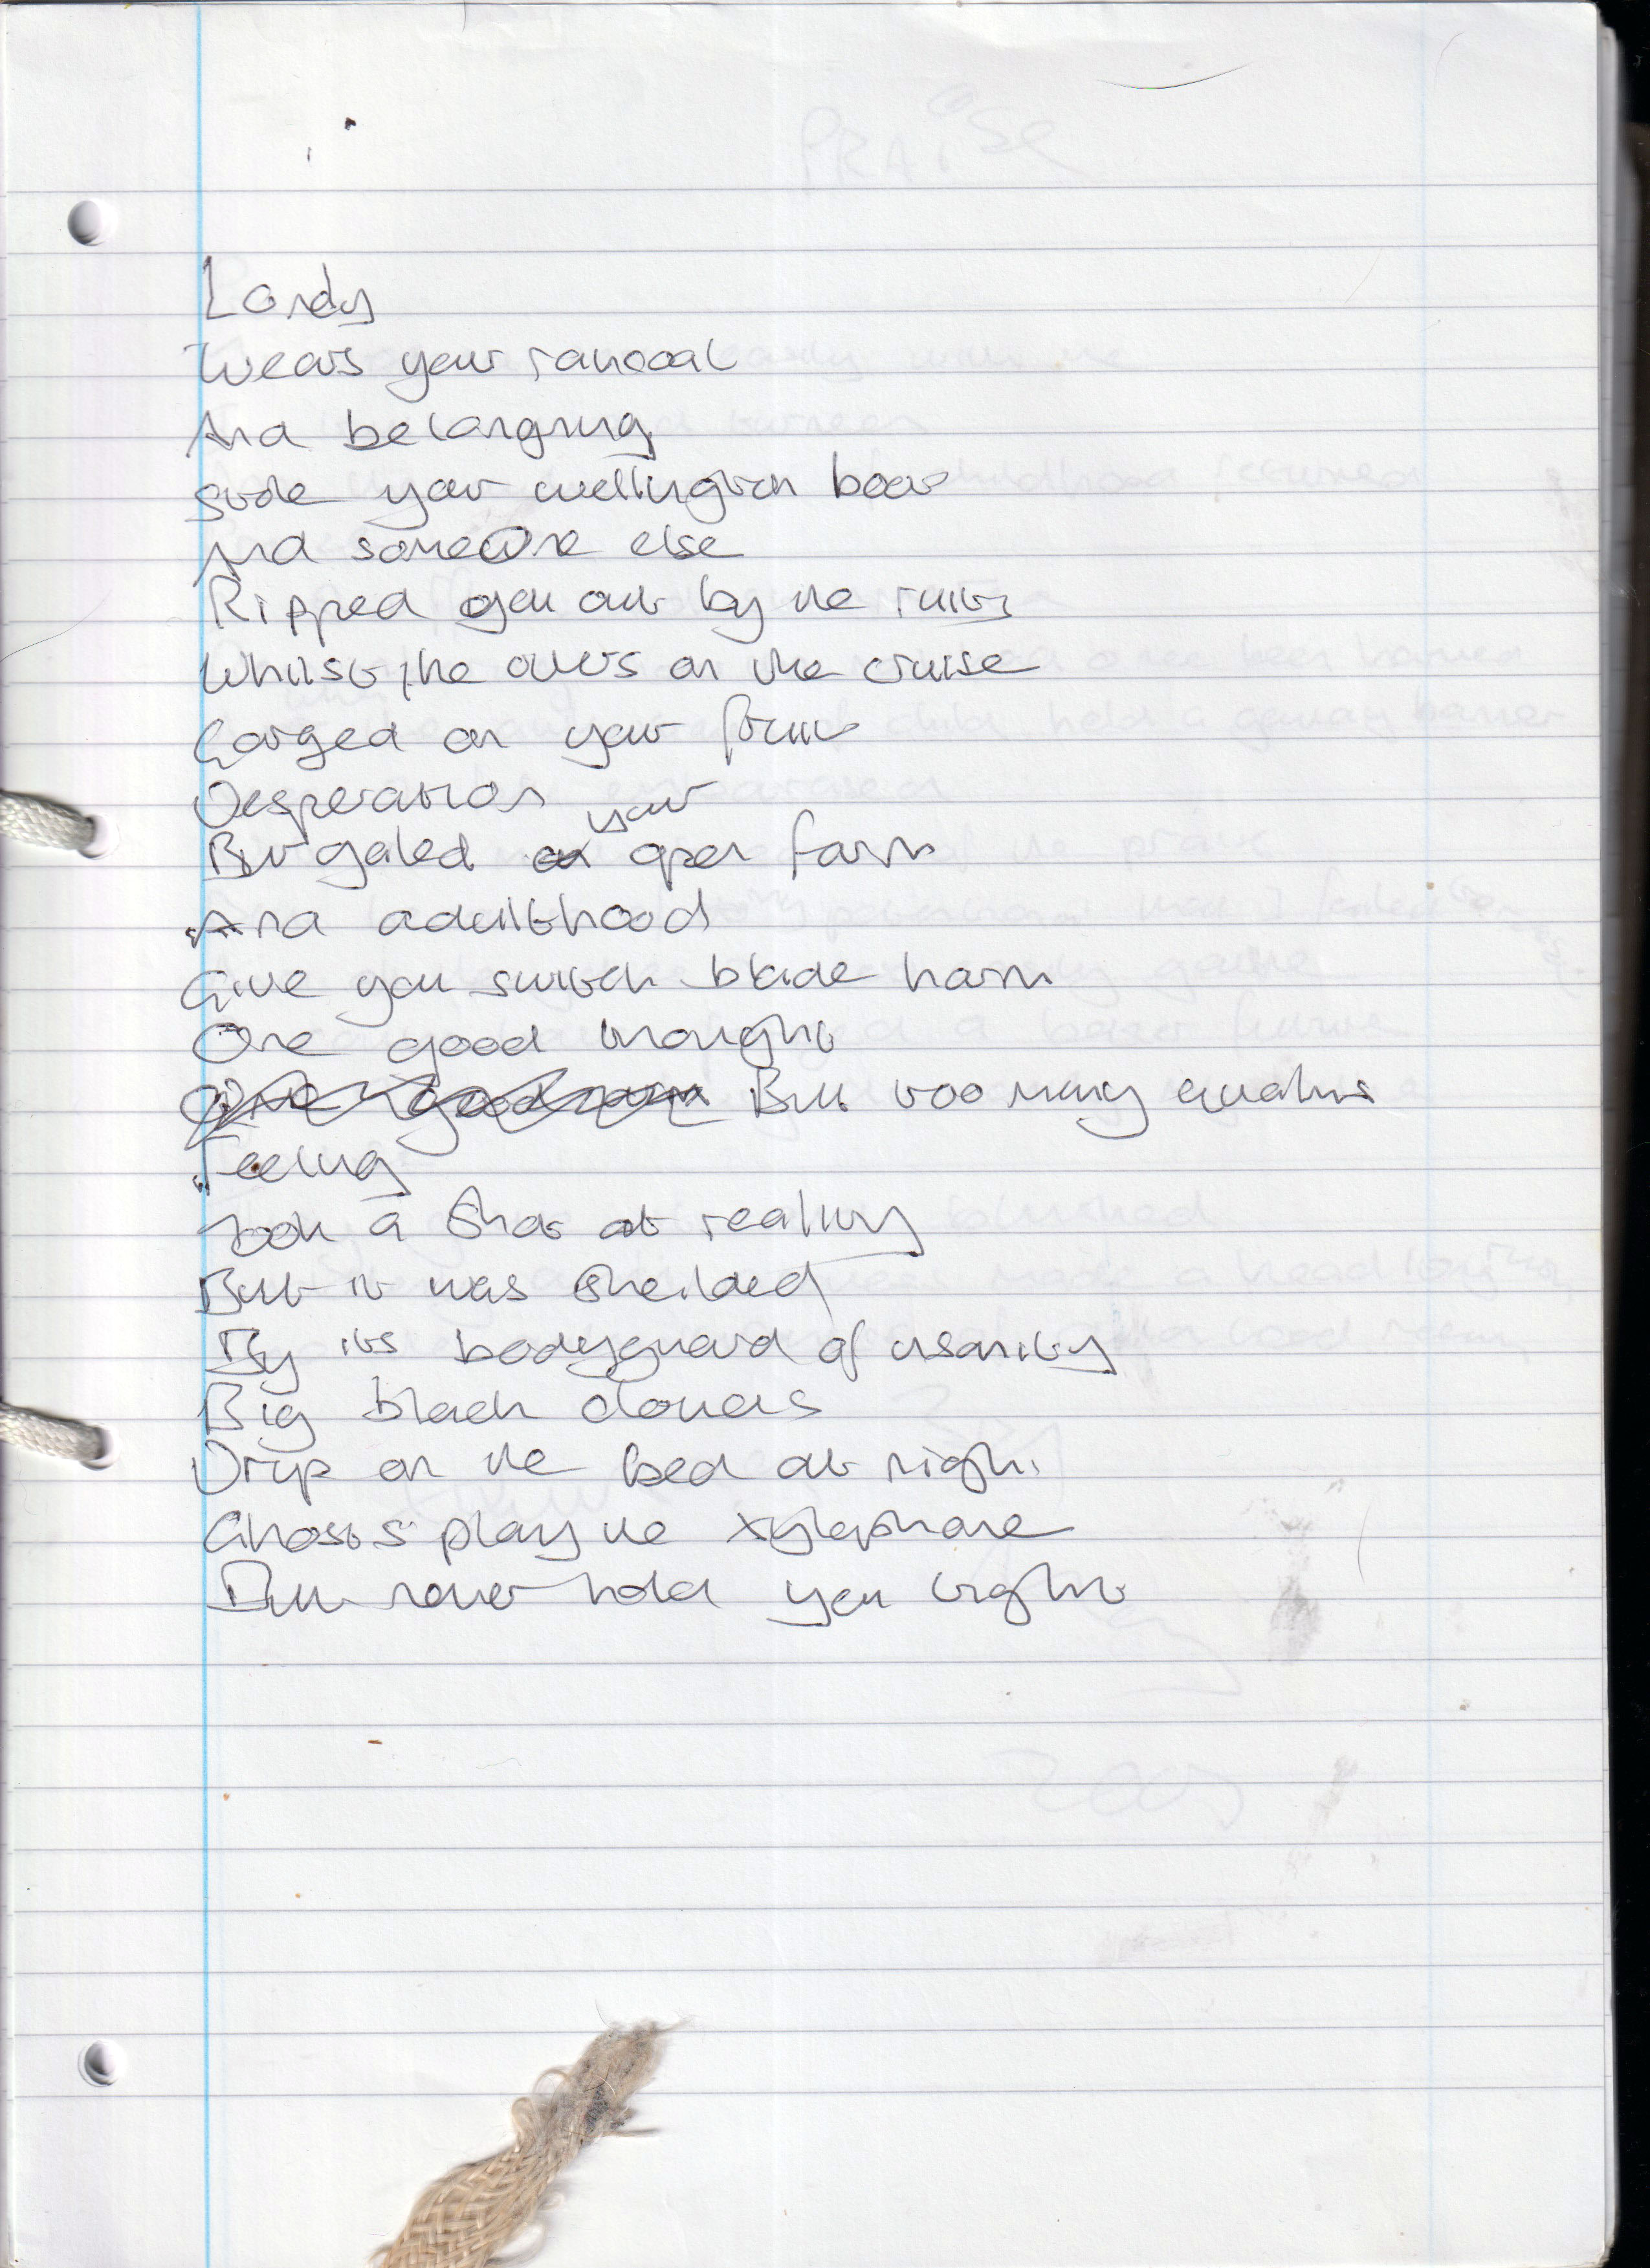 Lordy
Wears your raincoat
And belonging
Stole your wellington boots
And someone else
Ripped you out by the roots
Whilst the others on the cruise
Gorged on your fruit
Desperation
Burgaled your open farm
And adulthood
Give you switch blade harm
One good thought
But too many qualms
Feeling
Took a shot at reality
But it was sheilded
By its bodyguard of insanity
Big black clouds
Drip on the bed at night
Ghosts play the xylophone
But never hold you tight